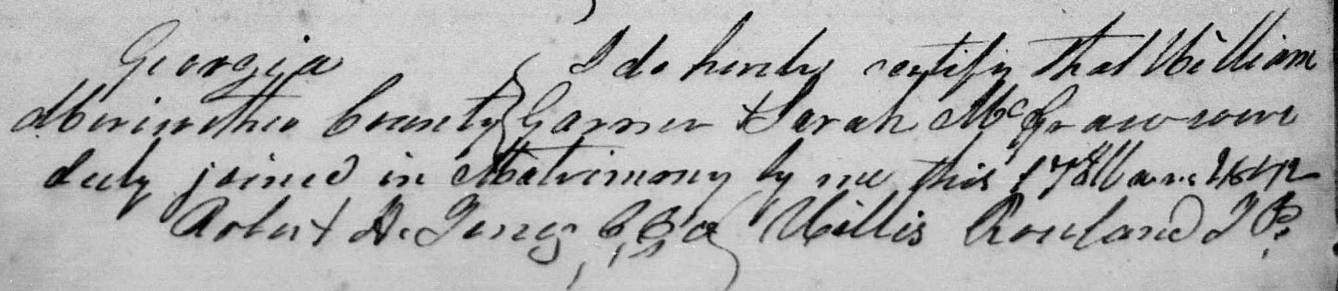 Georgia } I do hereby certify that William
Meriwether County } Garner & Sarah McGraw were
duly joined in Matrimony by me this 17th 1842
Robert H. Jones C.C.O. Willis Rowland J P.